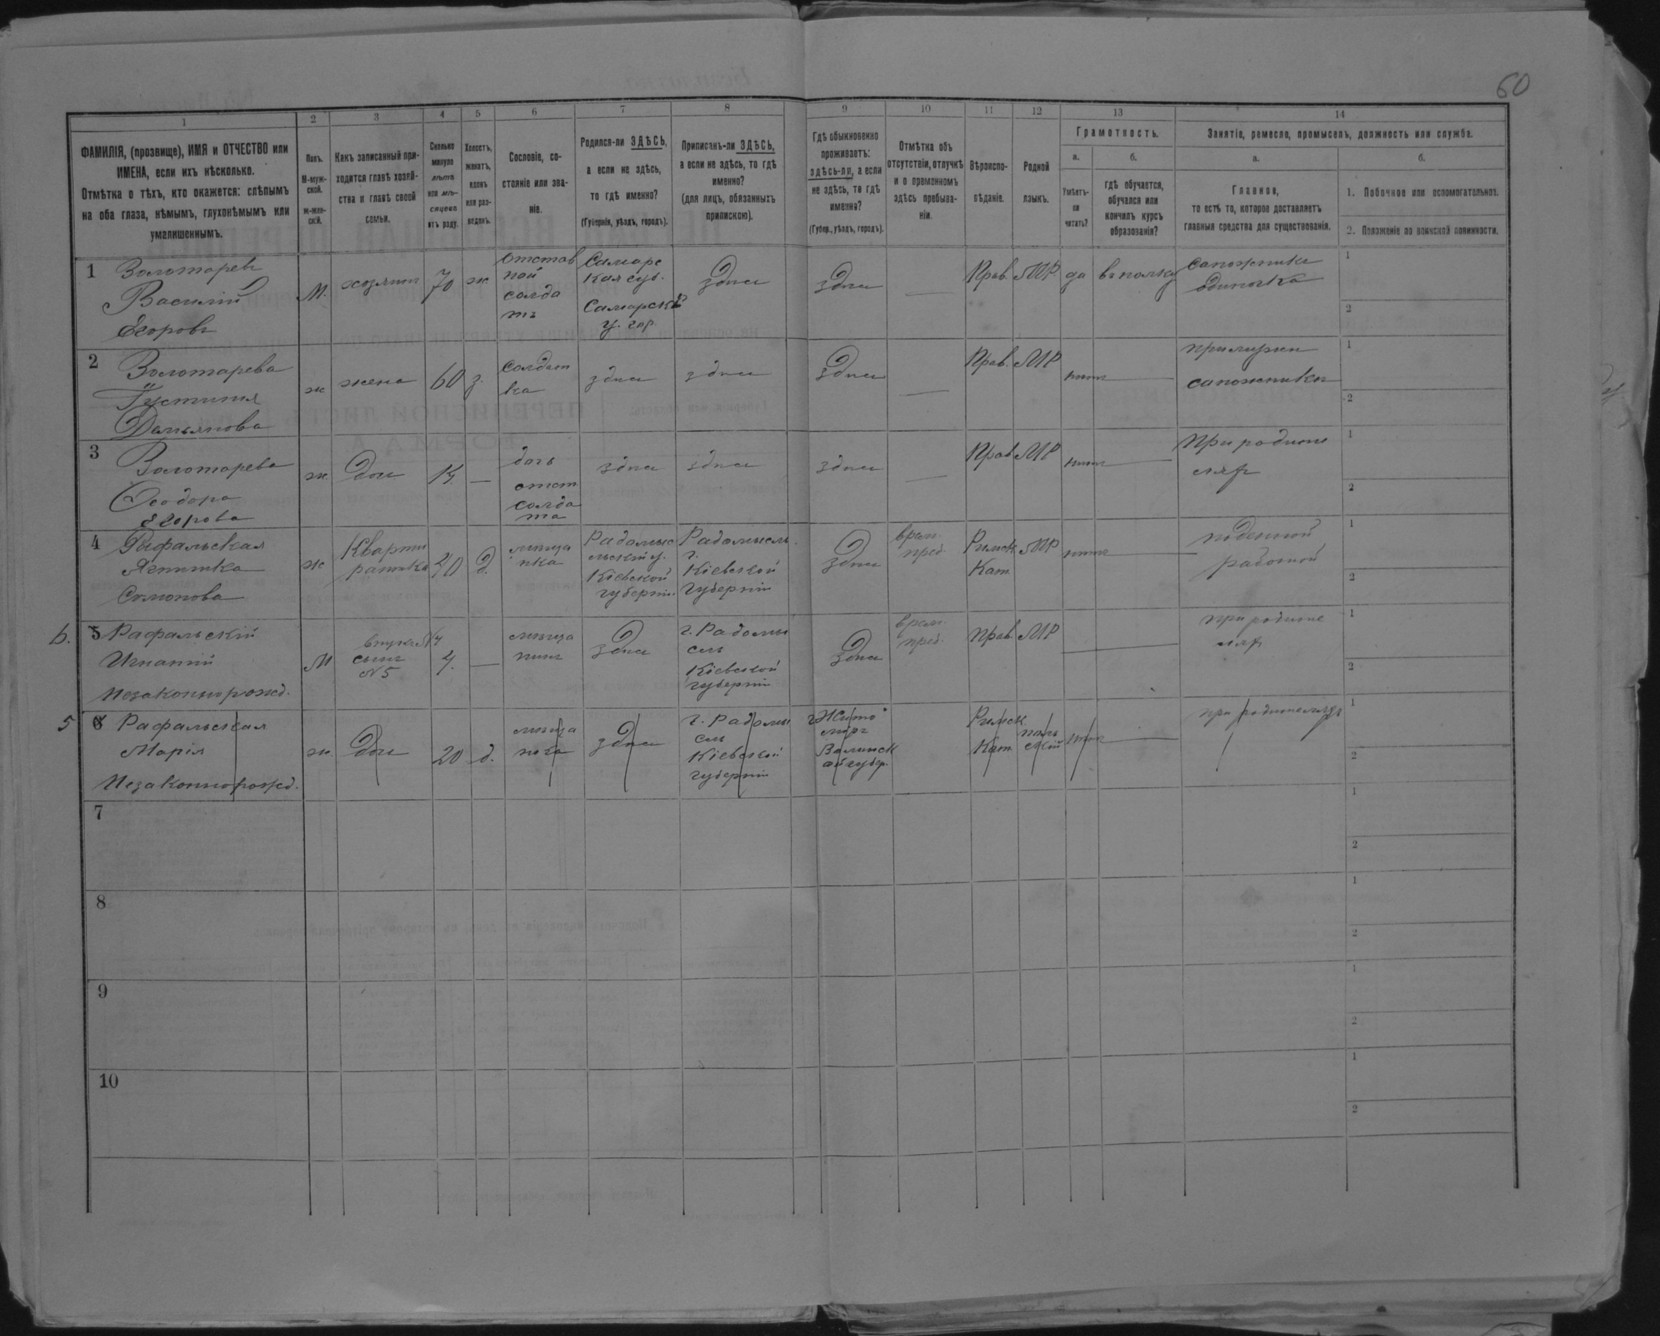 60
1 2 3 4 5 6 7 8 9 10 11 12 13 14
ФАМИЛІЯ, (прозвище), ИМЯ и ОТЧЕСТВО или
ИМЕНА, если ихъ нѣсколько.
Отмѣтка о тѣхъ, кто окажется: слѣпымъ
на оба глаза, нѣмымъ, глухонѣмымъ или
умалишеннымъ.
Полъ.
М-муж-
ской.
ж-жен-
скій.
Какъ записанный при-
ходится главѣ хозяй-
ства и главѣ своей
семьи.
Сколько
минуло
лѣтъ
или мѣ-
сяцевъ
отъ роду.
Холостъ,
женатъ,
вдовъ
или раз-
веденъ.
Сословіе, со-
стояніе или зва-
ніе.
Родился-ли ЗДѢСЬ,
а если не здѣсь,
то гдѣ именно?
(Губернія, уѣздъ, городъ).
Приписанъ-ли ЗДѢСЬ,
а если не здѣсь, то гдѣ
именно?
(для лицъ, обязанныхъ
припискою).
Гдѣ обыкновенно
проживаетъ:
здѣсь-ли, а если
не здѣсь, то гдѣ
именно?
(Губер., уѣздъ, городъ).
Отмѣтка объ
отсутствіи, отлучкѣ
и о временномъ
здѣсь пребыва-
ніи.
Вѣроиспо-
вѣданіе.
Родной
языкъ.
Грамотность.
а.
Умѣетъ-
ли
читать?
б.
гдѣ обучается,
обучался или
кончилъ курсъ
образованія?
Занятіе, ремесло, промыселъ, должность или служба.
а.
Главное,
то есть то, которое доставляетъ
главныя средства для существованія.
б.
1. Побочное или вспомогательное.
2. Положеніе по воинской повинности.
1
Золотаревъ
Василій
Егоровъ
М.
хозяинъ
70
ж
отстав
ной
солда
тъ
Самарс
кая губ.
Самарскій
у. гор.
Здѣсь
Здѣсь
—
Прав
МР
да
въ полку
сапожникъ
одиночка
1
2
2
Золотарева
Устинія
Демьянова
ж
жена
60
з.
солдат
ка
здѣсь
здѣсь
Здѣсь
—
Прав.
МР
нѣтъ
при мужѣ
сапожникѣ
1
2
3
Золотарева
Ѳеодора
Егорова
ж
Дочь
14
—
дочь
отст
солда
та
здѣсь
здѣсь
здѣсь
—
Прав
МР
нѣтъ
При родите
ляхъ
1
2
4
Рафальская
Семонова
ж
Кварти
рантка
40
д.
мѣща
нка
Радомыс
льскій у.
Кіевской
губерніи
Радомысль.
г.
Кіевской
губерніи
Здѣсь
врем.
преб.
Римск
Кат
МР
нѣтъ
поденной
работой
1
2
6.
5 Рафальскій
Игнатій
Незаконнорожд.
М
внукъ №4
сынъ
№5
4.
—
мѣща
нинъ
Здѣсь
г. Радомы
сль
Кіевской
губерніи
Здѣсь
врем.
преб.
Прав
МР
при родите
ляхъ
1
2
5
6 Рафальская
Марія
Незаконнорожд.
ж
Дочь
20
д.
мѣща
нка
здѣсь
г. Радомы
сль
Кіевской
губерніи
г. Жито
миръ
Волынск
ой губер.
Римск
Кат
поль
скій
нѣтъ
при родителяхъ
1
2
7
1
2
8
1
2
9
1
2
10
1
2